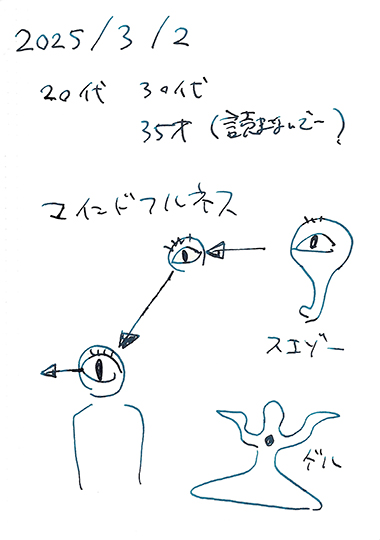 2025/3/2
20代 30代
35才 (読まないでー)
マインドフルネス
スエゾー
ゲル